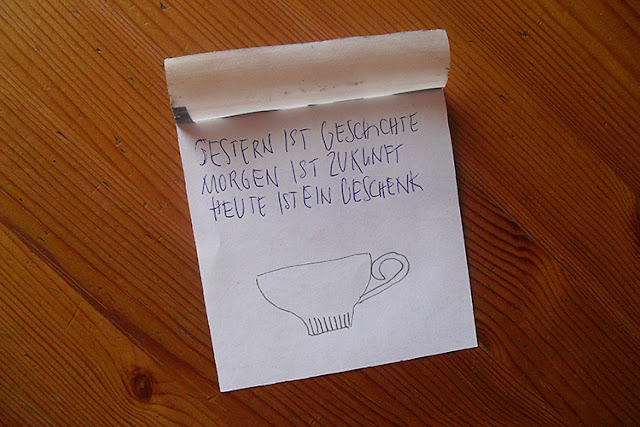 GESTERN IST GESCHICHTE
MORGEN IST ZUKUNFT
HEUTE IST EIN GESCHENK